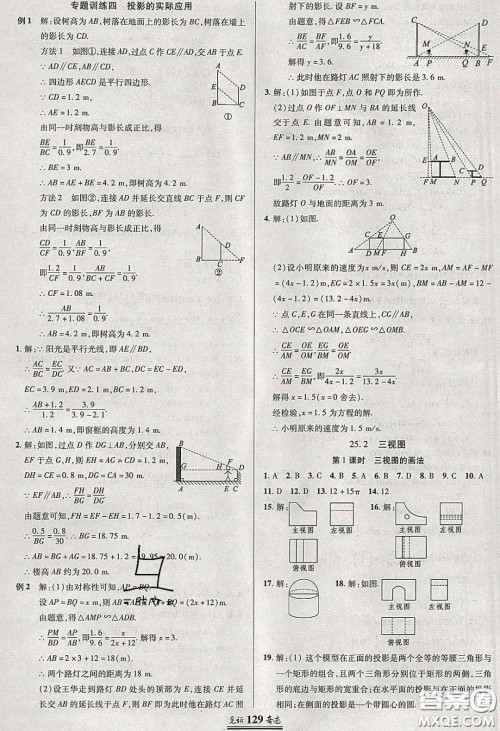 专题训练四　投影的实际应用
例1 解：设树高为 AB，树落在地面上的影长为 BC，树落在墙上
的影长为 CD.
方法1　如图①，连接 AD，过点 C 作 CE∥AD，交 AB 于点 E.
∵ CD∥AE，CE∥AD，
∴ 四边形 AECD 是平行四边形.
∵ CD = 1.2 m，
∴ AE = CD = 1.2 m.
由同一时刻物高与影长成正比，得
BE/BC = 1/0.9，即 BE/2.7 = 1/0.9，
∴ BE = 3 m.
∴ AB = AE + BE = 4.2 m，即树高为 4.2 m.
方法2　如图②，连接 AD 并延长交直线 BC 于点 F，则 CF
为 CD 的影长，BF 为 AB 的影长.
由同一时刻物高与影长成正比，得
CD/CF = 1/0.9，AB/BF = 1/0.9，即 1.2/CF = 1/0.9，
∴ CF = 1.08 m.
∴ AB/(2.7 + 1.08) = 1/0.9，
∴ AB = 4.2 m，即树高为 4.2 m.
①
②
1. 解：∵ 阳光是平行光线，即 AE∥BD，
∴ AC/BC = EC/DC. 又∵ AC = AB + BC，DC = EC − ED，
EC = 3.9 m，ED = 2.1 m，BC = 1.2 m，
∴ (AB + 1.2)/1.2 = 3.9/(3.9 − 2.1)，
∴ AB = 1.4 m，即窗框的高度为 1.4 m.
2. 解：如图，过点 D 作 DG⊥AB，分别交
AB，EF 于点 G，H，
∵ EF∥AB，∴ FH/BG = DH/DG.
由题意可知，FH = EF − EH = 1.7 − 1.2 = 0.5(m)，
∴ 0.5/BG = 0.8/30，∴ BG = 18.75 m.
∴ AB = BG + AG = 18.75 + 1.2 = 19.95 ≈ 20.0(m).
∴ 楼高 AB 约为 20.0 m.
例2 解：(1)由对称性可知，AP = BQ
设 AP = BQ = x m，则 AB = (2x + 12)m.
由题意，得 △AMP ∽ △ADB，
∴ PM/BD = AP/AB，即 1.6/9.6 = x/(2x + 12)，解得 x = 3.
∴ AB = 2×3 + 12 = 18(m).
∴ 两个路灯之间的距离为 18 m.
(2)设王华走到路灯 BD 处，头的顶部为点
E，连接 CE 并延长交 AB 的延长线于点 F，
则 BF 即为此时他在路灯 AC 照
解得 y = 3.6.
∴ 此时他在路灯 AC 照射下的影长是 3.6 m.
3. 解：(1)如图，点 F，点 O 和 PQ 即为所作.
(2)过点 O 作 OF⊥MN 与 BA 的延长线
交于点 E. 由题意可知，AB = 1.2 m，
EF = 1.2 m，MN = 2 m.
∵ AB∥MN，∴ AB/MN = OA/OM = OE/OF，
即 1.2/2 = (OF − 1.2)/OF，∴ OF = 3 m.
故路灯 O 与地面的距离为 3 m.
4. 解：(1)如图.
(2)设小明原来的速度为 x m/s，则 CE = 2x m，AM = AF − MF =
(4x − 1.2)m，EG = 2×1.5x = 3x(m)，BM = AB − AM = 12 −
(4x − 1.2) = (13.2 − 4x)m.
∵ 点 C，E，G 在同一条直线上，CG∥AB，
∴ △OCE ∽ △OAM，△OEG ∽ △OMB，
∴ CE/AM = OE/OM，EG/BM = OE/OM，
∴ CE/AM = EG/BM，即 2x/(4x − 1.2) = 3x/(13.2 − 4x)，
解得 x = 1.5(x = 0 舍去).
经检验，x = 1.5 为方程的解.
∴ 小明原来的速度为 1.5 m/s.
25.2　三视图
第1课时　三视图的画法
11. D　12. D　13. D　14. 12 + 15π　14. 12
15. 解：
主视图　左视图
俯视图
16. 解：
主视图　左视图
俯视图
17. 解：
18. 解：如图.
主视图　左视图
俯视图
19. 解：(1)这个模型在正面的投影是两个全等的等腰三角形与
一个矩形的组合，且长度相等的矩形的一边与等腰三角形的
底边与矩形的宽重合；在侧面的投影是一个矩形；在水平面
的投影是一个带圆心的圆.
见证 129 奇迹